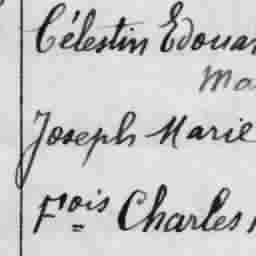 Célestin Edouar
Ma
Joseph Marie
Fois Charles